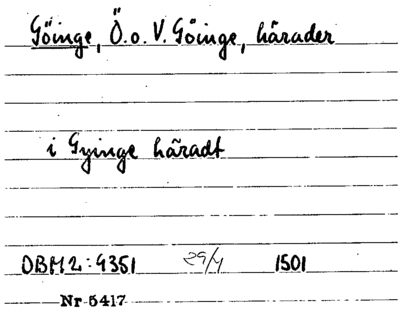 Göinge, Ö. o. V. Göinge, härader
i Gyinge häradt
DBM 2:4351 29/4 1501
Nr 5417